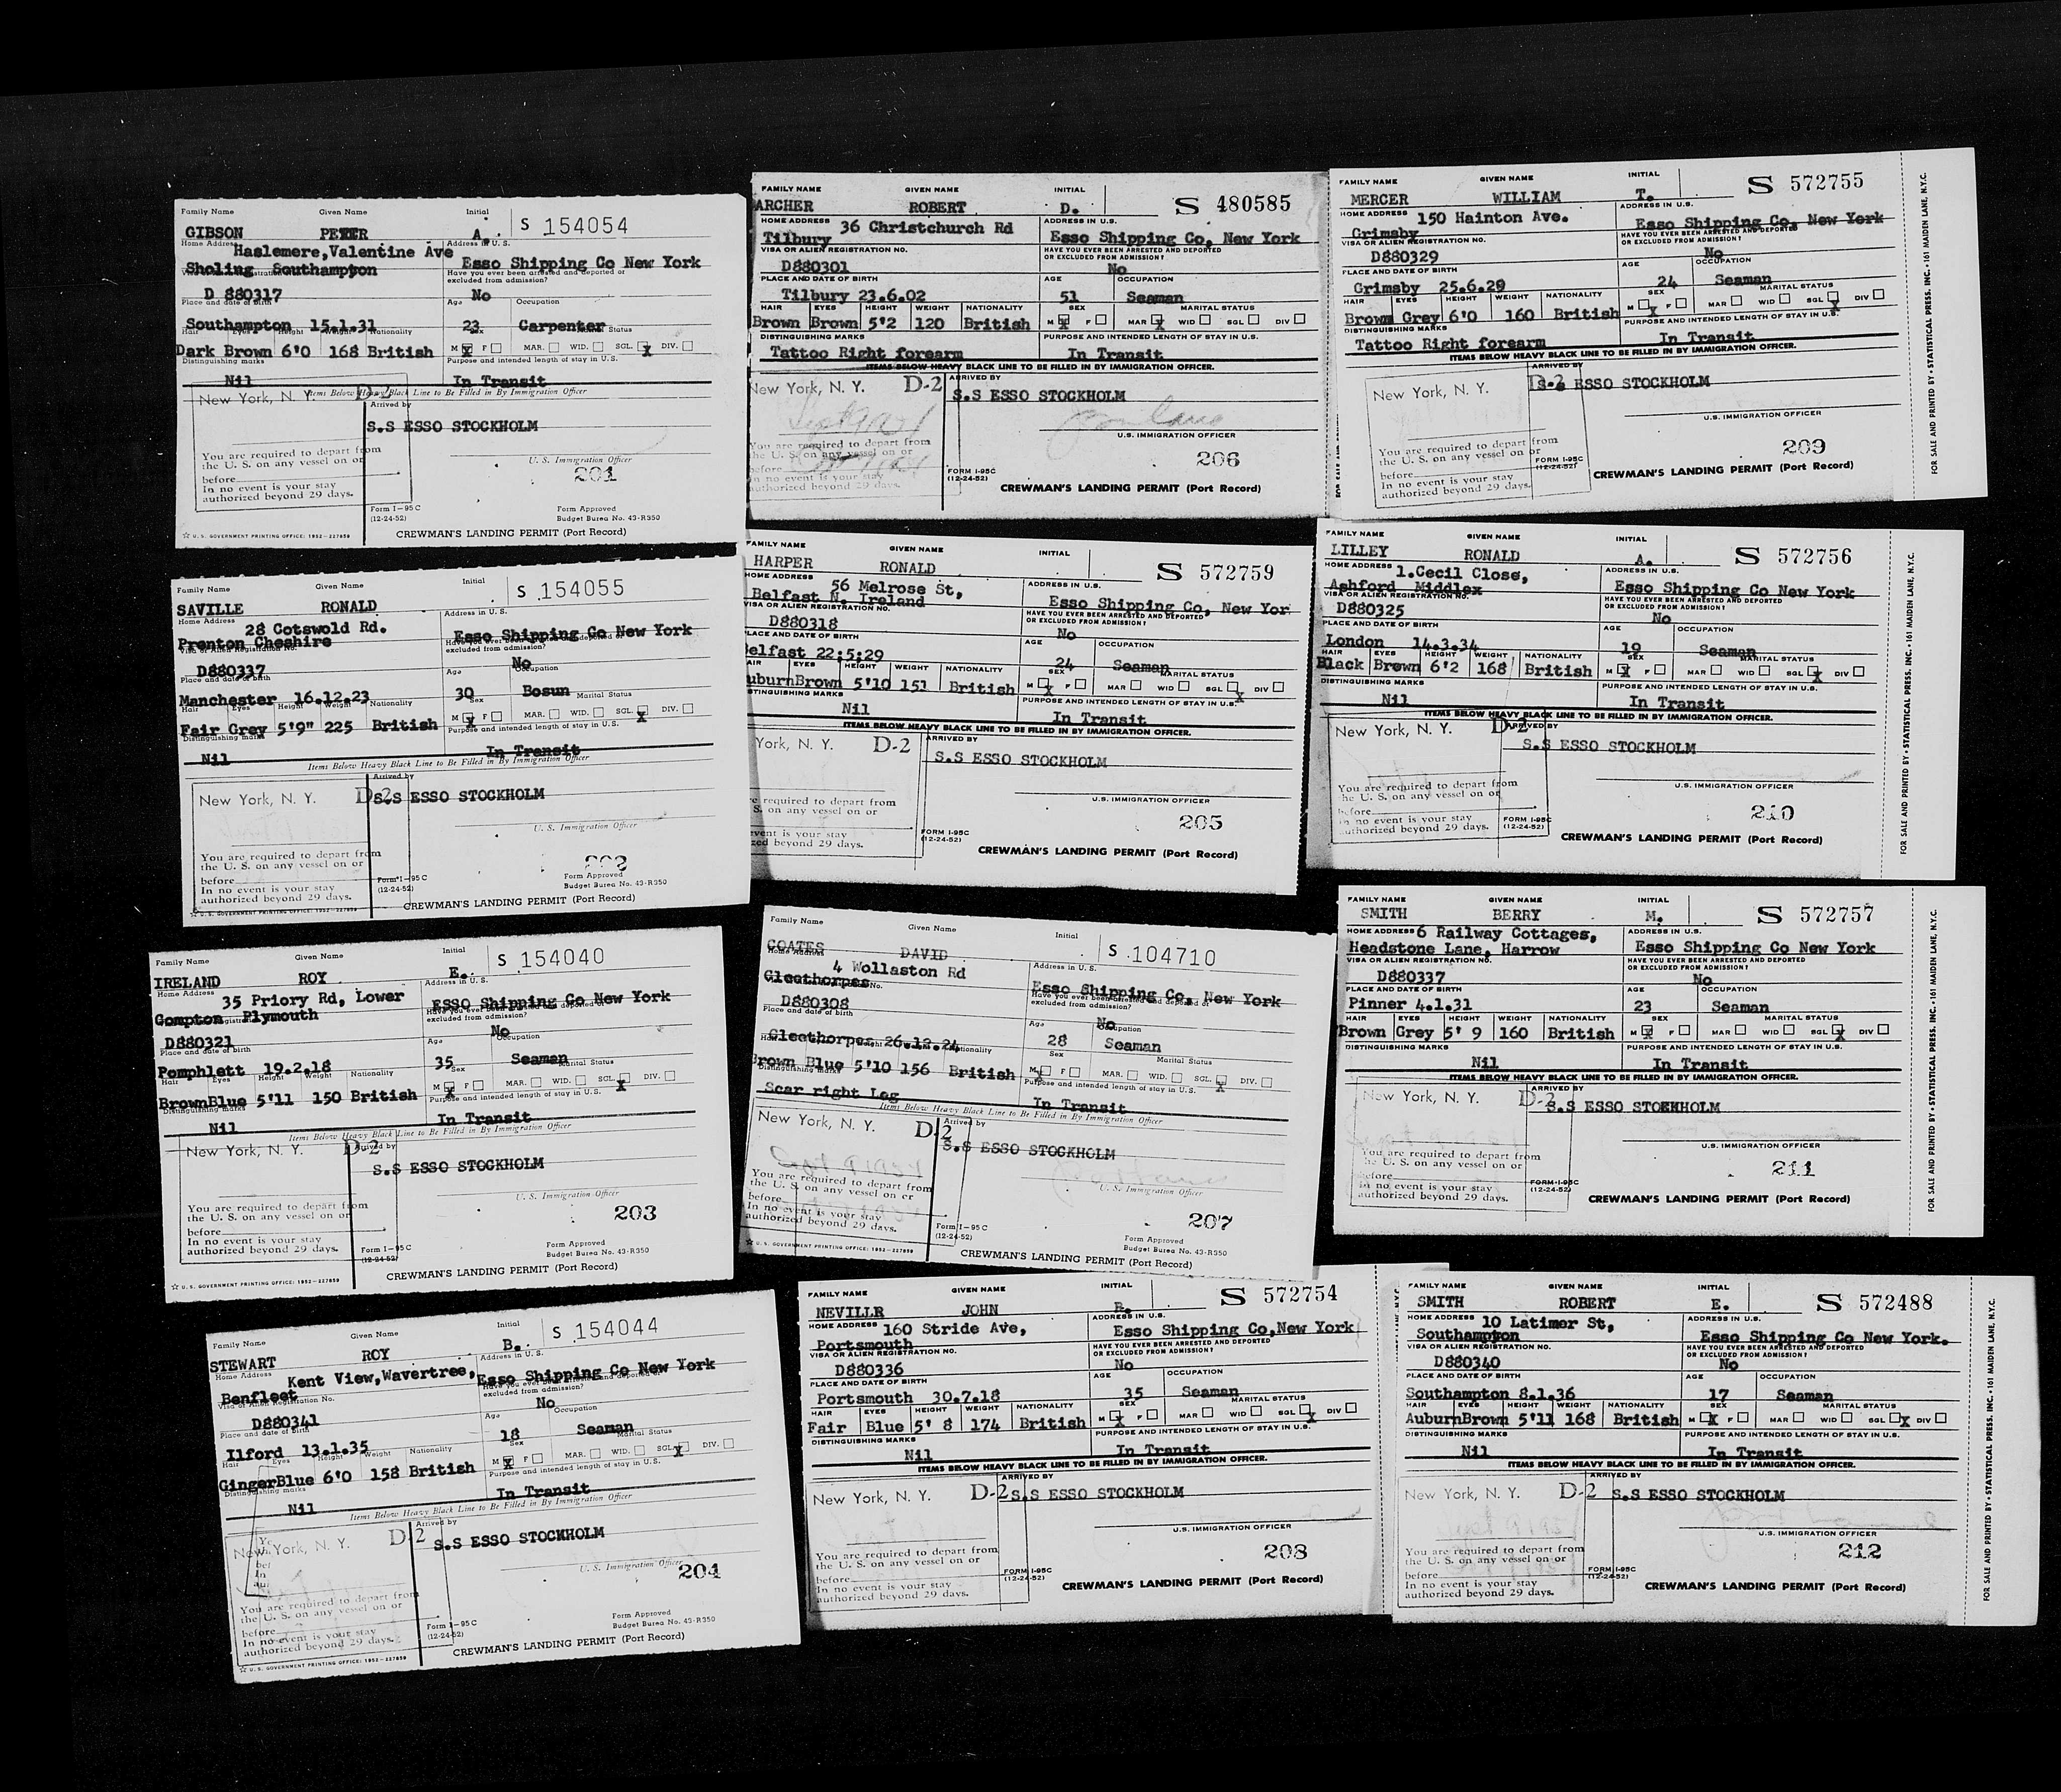 Family Name Given Name Initial S 154054
GIBSON PETER A.
Home Address Address in U.S.
Haslemere,Valentine Ave
Sholing Southampton Esso Shipping Co New York
Have you ever been arrested and deported or excluded from admission?
D 880317 No
Place and date of birth Age Occupation
Southampton 15.1.31 23 Carpenter
Hair Eyes Height Weight Nationality Sex Marital Status
Dark Brown 6'0 168 British M X F MAR. WID. SGL. X DIV.
Distinguishing marks Purpose and intended length of stay in U.S.
Nil In Transit
Items Below Heavy Black Line to Be Filled in By Immigration Officer
New York, N. Y. D-2 Arrived by
S.S ESSO STOCKHOLM
You are required to depart from
the U. S. on any vessel on or
before
In no event is your stay
authorized beyond 29 days.
U. S. Immigration Officer
201
Form I-95 C
(12-24-52)
Form Approved
Budget Burea No. 43-R350
☆ U. S. GOVERNMENT PRINTING OFFICE: 1952-227859
CREWMAN'S LANDING PERMIT (Port Record)
Family Name Given Name Initial S 154055
SAVILLE RONALD
Home Address Address in U.S.
28 Cotswold Rd.
Prenton Cheshire Esso Shipping Co New York
Visa or Alien Registration No. Have you ever been arrested and deported or excluded from admission?
D880337 No
Place and date of birth Age Occupation
Manchester 16.12.23 30 Bosun
Hair Eyes Height Weight Nationality Sex Marital Status
Fair Grey 5'9" 225 British M X F MAR. WID. SGL. X DIV.
Distinguishing marks Purpose and intended length of stay in U.S.
Nil In Transit
Items Below Heavy Black Line to Be Filled in By Immigration Officer
New York, N. Y. D-2 Arrived by
S.S ESSO STOCKHOLM
U. S. Immigration Officer
You are required to depart from
the U. S. on any vessel on or
before
In no event is your stay
authorized beyond 29 days.
202
Form I-95 C
(12-24-52)
Form Approved
Budget Burea No. 43-R350
☆ U. S. GOVERNMENT PRINTING OFFICE: 1952-227859
CREWMAN'S LANDING PERMIT (Port Record)
Family Name Given Name Initial S 154040
IRELAND ROY E.
Home Address Address in U.S.
35 Priory Rd, Lower
Compton Plymouth ESSO Shipping Co New York
Have you ever been arrested and deported or excluded from admission?
D880321 No
Place and date of birth Age Occupation
Pomphlett 19.2.18 35 Seaman
Hair Eyes Height Weight Nationality Sex Marital Status
BrownBlue 5'11 150 British M X F MAR. WID. SGL. X DIV.
Distinguishing marks Purpose and intended length of stay in U.S.
Nil In Transit
Items Below Heavy Black Line to Be Filled in By Immigration Officer
New York, N. Y. D-2 Arrived by
S.S ESSO STOCKHOLM
U. S. Immigration Officer
You are required to depart from
the U. S. on any vessel on or
before
In no event is your stay
authorized beyond 29 days.
203
Form I-95 C
(12-24-52)
Form Approved
Budget Burea No. 43-R350
☆ U. S. GOVERNMENT PRINTING OFFICE: 1952-227859
CREWMAN'S LANDING PERMIT (Port Record)
Family Name Given Name Initial S 154044
STEWART ROY B.
Home Address Address in U.S.
Kent View,Wavertree, Esso Shipping Co New York
Benfleet
Visa or Alien Registration No. Have you ever been arrested and deported or excluded from admission?
D880341 No
Place and date of birth Age Occupation
Ilford 13.1.35 18 Seaman
Hair Eyes Height Weight Nationality Sex Marital Status
GingerBlue 6'0 158 British M X F MAR. WID. SGL. X DIV.
Distinguishing marks Purpose and intended length of stay in U.S.
Nil In Transit
Items Below Heavy Black Line to Be Filled in By Immigration Officer
New York, N. Y. D-2 Arrived by
S.S ESSO STOCKHOLM
U. S. Immigration Officer
204
You are required to depart from
the U. S. on any vessel on or
before
In no event is your stay
authorized beyond 29 days.
Form I-95 C
(12-24-52)
Form Approved
Budget Burea No. 43-R350
☆ U. S. GOVERNMENT PRINTING OFFICE: 1952-227859
CREWMAN'S LANDING PERMIT (Port Record)
FAMILY NAME GIVEN NAME INITIAL S 480585
ARCHER ROBERT D.
HOME ADDRESS ADDRESS IN U.S.
36 Christchurch Rd
Tilbury Esso Shipping Co, New York
VISA OR ALIEN REGISTRATION NO. HAVE YOU EVER BEEN ARRESTED AND DEPORTED OR EXCLUDED FROM ADMISSION?
D880301 No
PLACE AND DATE OF BIRTH AGE OCCUPATION
Tilbury 23.6.02 51 Seaman
HAIR EYES HEIGHT WEIGHT NATIONALITY SEX MARITAL STATUS
Brown Brown 5'2 120 British M X F MAR X WID SGL DIV
DISTINGUISHING MARKS PURPOSE AND INTENDED LENGTH OF STAY IN U.S.
Tattoo Right forearm In Transit
ITEMS BELOW HEAVY BLACK LINE TO BE FILLED IN BY IMMIGRATION OFFICER.
New York, N. Y. D-2 ARRIVED BY
S.S ESSO STOCKHOLM
U.S. IMMIGRATION OFFICER
You are required to depart from
the U. S. on any vessel on or
before
In no event is your stay
authorized beyond 29 days.
206
FORM I-95C
(12-24-52)
CREWMAN'S LANDING PERMIT (Port Record)
FAMILY NAME GIVEN NAME INITIAL S 572759
HARPER RONALD
HOME ADDRESS ADDRESS IN U.S.
56 Melrose St,
Belfast N. Ireland Esso Shipping Co, New Yor
VISA OR ALIEN REGISTRATION NO. HAVE YOU EVER BEEN ARRESTED AND DEPORTED OR EXCLUDED FROM ADMISSION?
D880318 No
PLACE AND DATE OF BIRTH AGE OCCUPATION
elfast 22;5;29 24 Seaman
AIR EYES HEIGHT WEIGHT NATIONALITY SEX MARITAL STATUS
uburnBrown 5'10 151 British M X F MAR WID SGL X DIV
DISTINGUISHING MARKS PURPOSE AND INTENDED LENGTH OF STAY IN U.S.
Nil In Transit
ITEMS BELOW HEAVY BLACK LINE TO BE FILLED IN BY IMMIGRATION OFFICER.
York, N. Y. D-2 ARRIVED BY
S.S ESSO STOCKHOLM
U.S. IMMIGRATION OFFICER
e required to depart from
S. on any vessel on or
event is your stay
zed beyond 29 days.
205
FORM I-95C
(12-24-52)
CREWMAN'S LANDING PERMIT (Port Record)
Family Name Given Name Initial S 104710
COATES DAVID
Home Address Address in U.S.
4 Wollaston Rd
Cleethorpes Esso Shipping Co, New York
Have you ever been arrested and deported or excluded from admission?
D880308 No
Place and date of birth Age Occupation
Cleethorpes 26.12.24 28 Seaman
Nationality Sex Marital Status
Brown Blue 5'10 156 British M X F MAR. WID. SGL. X DIV.
Distinguishing marks Purpose and intended length of stay in U.S.
Scar right Leg In Transit
Items Below Heavy Black Line to Be Filled in By Immigration Officer
New York, N. Y. D-2 Arrived by
S.S ESSO STOCKHOLM
U. S. Immigration Officer
You are required to depart from
the U. S. on any vessel on or
before
In no event is your stay
authorized beyond 29 days.
207
Form I-95 C
(12-24-52)
Form Approved
Budget Burea No. 43-R350
☆ U. S. GOVERNMENT PRINTING OFFICE: 1952-227859
CREWMAN'S LANDING PERMIT (Port Record)
FAMILY NAME GIVEN NAME INITIAL S 572754
NEVILLR JOHN
HOME ADDRESS ADDRESS IN U.S.
160 Stride Ave,
Portsmouth Esso Shipping Co,New York
VISA OR ALIEN REGISTRATION NO. HAVE YOU EVER BEEN ARRESTED AND DEPORTED OR EXCLUDED FROM ADMISSION?
D880336 No
PLACE AND DATE OF BIRTH AGE OCCUPATION
Portsmouth 30.7.18 35 Seaman
HAIR EYES HEIGHT WEIGHT NATIONALITY SEX MARITAL STATUS
Fair Blue 5' 8 174 British M X F MAR WID SGL X DIV
DISTINGUISHING MARKS PURPOSE AND INTENDED LENGTH OF STAY IN U.S.
Nil In Transit
ITEMS BELOW HEAVY BLACK LINE TO BE FILLED IN BY IMMIGRATION OFFICER.
New York, N. Y. D-2 ARRIVED BY
S.S ESSO STOCKHOLM
U.S. IMMIGRATION OFFICER
You are required to depart from
the U. S. on any vessel on or
before
In no event is your stay
authorized beyond 29 days.
208
FORM I-95C
(12-24-52)
CREWMAN'S LANDING PERMIT (Port Record)
FAMILY NAME GIVEN NAME INITIAL S 572755
MERCER WILLIAM T.
HOME ADDRESS ADDRESS IN U.S.
150 Hainton Ave.
Grimsby Esso Shipping Co, New York
VISA OR ALIEN REGISTRATION NO. HAVE YOU EVER BEEN ARRESTED AND DEPORTED OR EXCLUDED FROM ADMISSION?
D880329 No
PLACE AND DATE OF BIRTH AGE OCCUPATION
Grimsby 25.6.29 24 Seaman
HAIR EYES HEIGHT WEIGHT NATIONALITY SEX MARITAL STATUS
Brown Grey 6'0 160 British M X F MAR WID SGL X DIV
DISTINGUISHING MARKS PURPOSE AND INTENDED LENGTH OF STAY IN U.S.
Tattoo Right forearm In Transit
ITEMS BELOW HEAVY BLACK LINE TO BE FILLED IN BY IMMIGRATION OFFICER.
New York, N. Y. D-2 ARRIVED BY
S.S ESSO STOCKHOLM
U.S. IMMIGRATION OFFICER
You are required to depart from
the U. S. on any vessel on or
before
In no event is your stay
authorized beyond 29 days.
209
FORM I-95C
(12-24-52)
CREWMAN'S LANDING PERMIT (Port Record)
FOR SALE AND PRINTED BY • STATISTICAL PRESS, INC. • 161 MAIDEN LANE, N.Y.C.
FAMILY NAME GIVEN NAME INITIAL S 572756
LILLEY RONALD A.
HOME ADDRESS ADDRESS IN U.S.
1.Cecil Close,
Ashford Middlex Esso Shipping Co New York
VISA OR ALIEN REGISTRATION NO. HAVE YOU EVER BEEN ARRESTED AND DEPORTED OR EXCLUDED FROM ADMISSION?
D880325 No
PLACE AND DATE OF BIRTH AGE OCCUPATION
London 14.3.34 19 Seaman
HAIR EYES HEIGHT WEIGHT NATIONALITY SEX MARITAL STATUS
Black Brown 6'2 168 British M X F MAR WID SGL X DIV
DISTINGUISHING MARKS PURPOSE AND INTENDED LENGTH OF STAY IN U.S.
Nil In Transit
ITEMS BELOW HEAVY BLACK LINE TO BE FILLED IN BY IMMIGRATION OFFICER.
New York, N. Y. D-2 ARRIVED BY
S.S ESSO STOCKHOLM
U.S. IMMIGRATION OFFICER
You are required to depart from
the U. S. on any vessel on or
before
In no event is your stay
authorized beyond 29 days.
210
FORM I-95C
(12-24-52)
CREWMAN'S LANDING PERMIT (Port Record)
FOR SALE AND PRINTED BY • STATISTICAL PRESS, INC. • 161 MAIDEN LANE, N.Y.C.
FAMILY NAME GIVEN NAME INITIAL S 572757
SMITH BERRY M.
HOME ADDRESS ADDRESS IN U.S.
6 Railway Cottages,
Headstone Lane, Harrow Esso Shipping Co New York
VISA OR ALIEN REGISTRATION NO. HAVE YOU EVER BEEN ARRESTED AND DEPORTED OR EXCLUDED FROM ADMISSION?
D880337 No
PLACE AND DATE OF BIRTH AGE OCCUPATION
Pinner 4.1.31 23 Seaman
HAIR EYES HEIGHT WEIGHT NATIONALITY SEX MARITAL STATUS
Brown Grey 5' 9 160 British M X F MAR WID SGL X DIV
DISTINGUISHING MARKS PURPOSE AND INTENDED LENGTH OF STAY IN U.S.
Nil In Transit
ITEMS BELOW HEAVY BLACK LINE TO BE FILLED IN BY IMMIGRATION OFFICER.
New York, N. Y. D-2 ARRIVED BY
S.S ESSO STOCKHOLM
U.S. IMMIGRATION OFFICER
You are required to depart from
the U. S. on any vessel on or
before
In no event is your stay
authorized beyond 29 days.
211
FORM I-95C
(12-24-52)
CREWMAN'S LANDING PERMIT (Port Record)
FOR SALE AND PRINTED BY • STATISTICAL PRESS, INC. • 161 MAIDEN LANE, N.Y.C.
FAMILY NAME GIVEN NAME INITIAL S 572488
SMITH ROBERT E.
HOME ADDRESS ADDRESS IN U.S.
10 Latimer St,
Southampton Esso Shipping Co New York.
VISA OR ALIEN REGISTRATION NO. HAVE YOU EVER BEEN ARRESTED AND DEPORTED OR EXCLUDED FROM ADMISSION?
D880340 No
PLACE AND DATE OF BIRTH AGE OCCUPATION
Southampton 8.1.36 17 Seaman
HAIR EYES HEIGHT WEIGHT NATIONALITY SEX MARITAL STATUS
AuburnBrown 5'11 168 British M X F MAR WID SGL X DIV
DISTINGUISHING MARKS PURPOSE AND INTENDED LENGTH OF STAY IN U.S.
Nil In Transit
ITEMS BELOW HEAVY BLACK LINE TO BE FILLED IN BY IMMIGRATION OFFICER.
New York, N. Y. D-2 ARRIVED BY
S.S ESSO STOCKHOLM
U.S. IMMIGRATION OFFICER
You are required to depart from
the U. S. on any vessel on or
before
In no event is your stay
authorized beyond 29 days.
212
FORM I-95C
(12-24-52)
CREWMAN'S LANDING PERMIT (Port Record)
FOR SALE AND PRINTED BY • STATISTICAL PRESS, INC. • 161 MAIDEN LANE, N.Y.C.